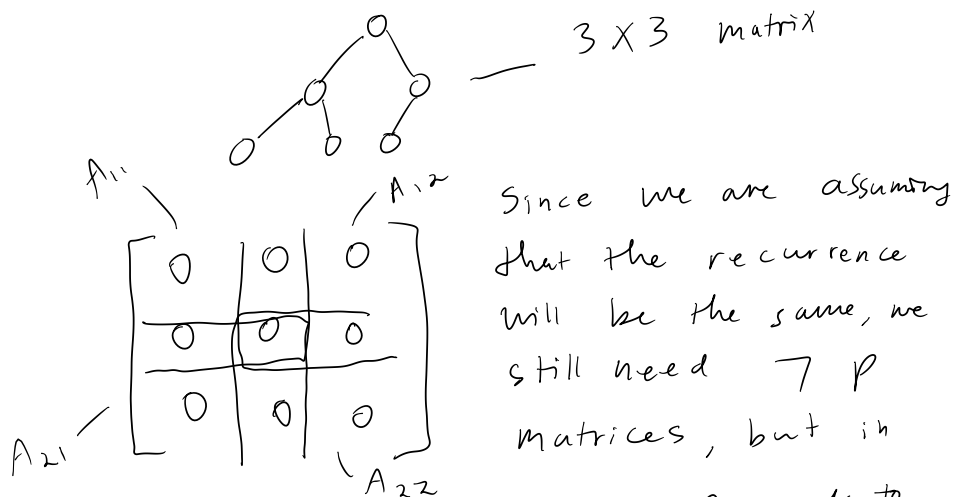 3 X 3 matrix
A11
A12
Since we are assuming
that the recurrence
will be the same, we
still need 7 P
matrices, but in
A21
A22